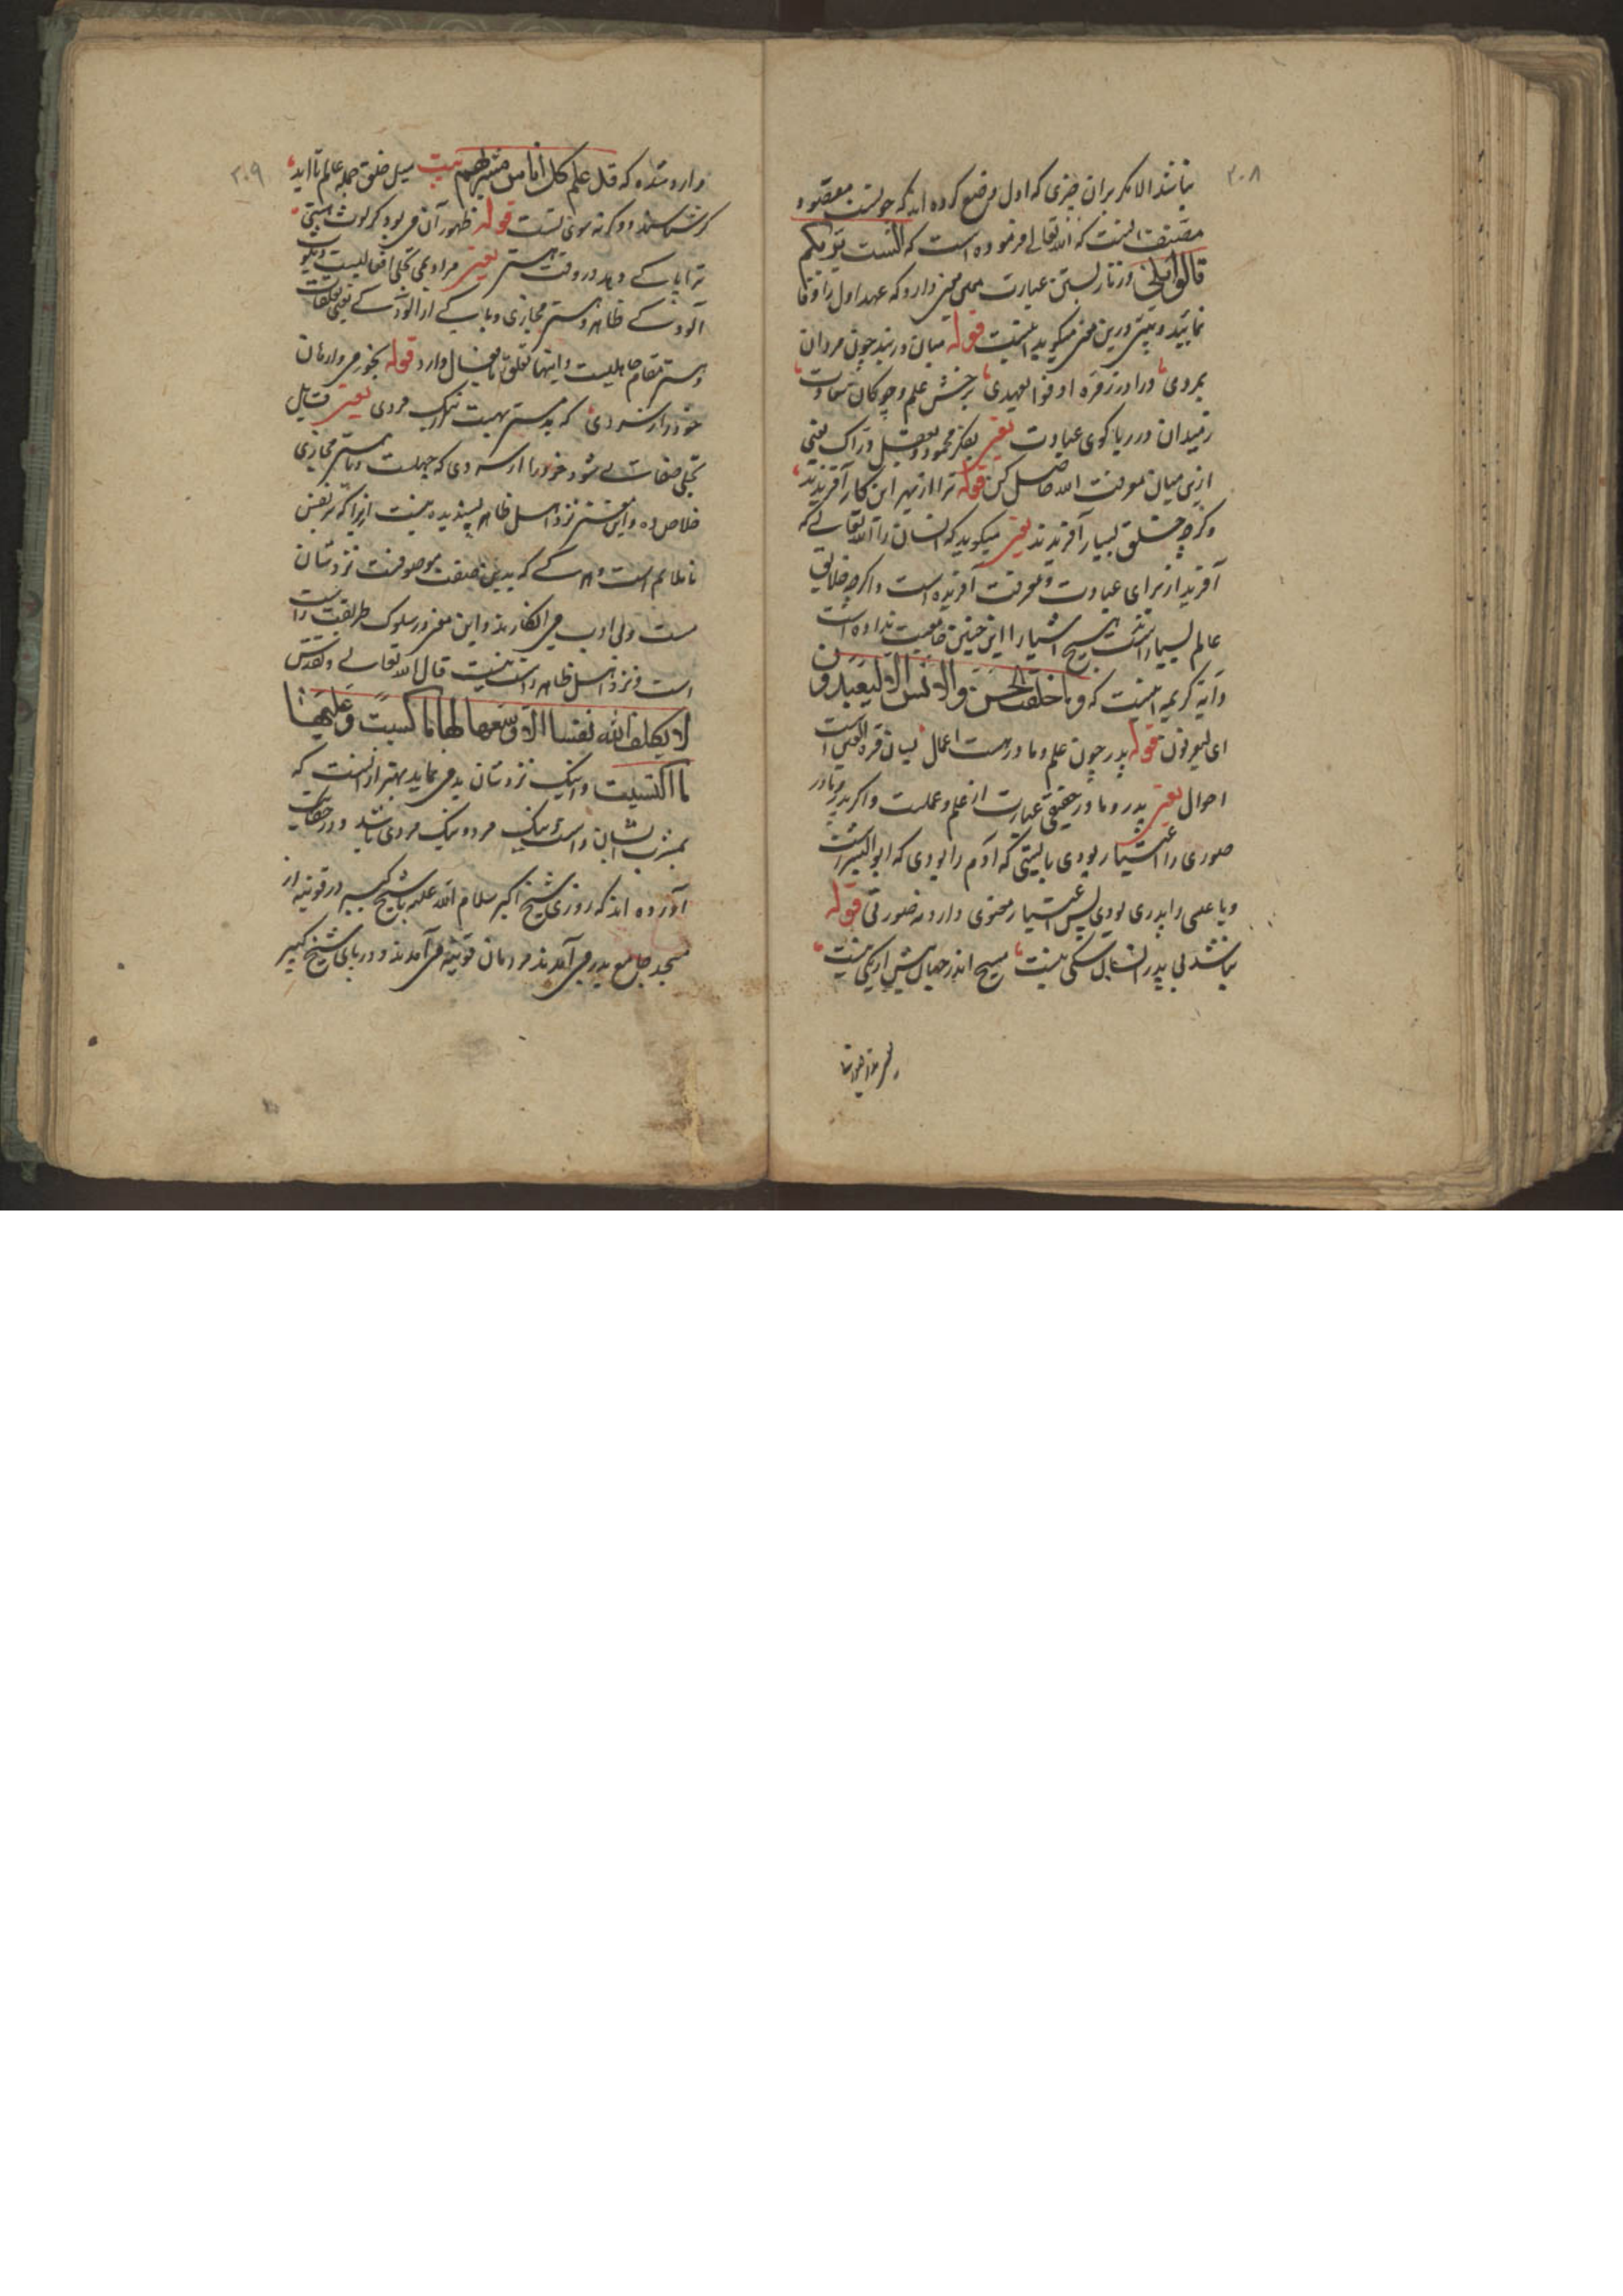 ۳۰۸
نباشد الا مکر بران چیزی که اول وضع کرده اند که جولست مقصود
مصنف اینست که الله تعالی فرموده است که الست بربکم
قالوا بلی وزنار بستن عبارت معنی دارد که عهد اول را وفا
نمایید و بیتی درین معنی میکوید اینست قوله میان دربند چون مردان
بمردی درا در زمره اوفوا بعهدی برخش علم و چوکان سعادت
زمیدان در ربا کوی عبادت یعنی بفکر محمود و بعقل دراک یعنی
ازین میان معرفت الله حاصل کن قوله ترا از بهر این کار آفریدند
وکرچه خلق بسیار آفریدند یعنی میکوید که انسان را الله تعالی که
آفرید از برای عبادت و معرفت آفریده است و اکرچه خلایق
عالم بسیار است هیچ اشیا را این چنین جامعیت نداده است
وآیة کریمه اینست که وما خلقت الجن والانس الا لیعبدون
ای لیعرفون قوله پدر چون علم و مادر هست اعمال بسان قرة العین است
احوال یعنی پدر و مادر حقیقی عبارت از علم و عملست و اکر پدر و مادر
صوری را اعتبار بودی بایستی که آدم را بودی که ابو البشر است
ویا عیسی را پدری بودی پس اعتبار معنوی دارد نه صورتی قوله
نباشد بی پدر انسان شکی نیست مسیح اندر جهان بیش از یکی نیست
۳۰۹
وارد شده که قد علم کل اناس مشربهم بیت سیل خلق جمله عالم تا ابد
کر شناسند و کرنه سوی تست قوله ظهور آن می بود کز لوث هستی
ترا پاکی دهد در وقت مستی یعنی مراد بمی تجلی افعالیست
آلودکی ظاهر هستی مجازی و پاکی از آلودکی یعنی
هستی مقام جاهلیست و اینها تعلق بافعال دارد قوله بخور می وارهان
خود را ز سردی که بد مستی بهست از نیک مردی یعنی قابل
تجلی صفات می شود خود را از سردی که جهلست و با هستی مجازی
خلاص ده و این معنی نزد اهل ظاهر پسندیده نیست زیرا که بر نفس
ناملایم است و هر کسی که بدین صفت موصوفست نزدشان
مست و بی ادب می انکارند و این معنی در سلوک طریقت راست
است و نزد اهل ظاهر راست نیست قال الله تعالی وتقدس
لا یکلف الله نفسا الا وسعها لها ما کسبت وعلیها
ما اکتسبت و اینک نزدشان بد می نماید بهتر ازآنست که
بمشرب ایشان راست و نیک مرد و نیک مردی باشد و در حکایت
آورده اند که روزی شیخ اکبر سلام الله علیه با شیخ کبیر در قونیه از
مسجد جامع بدر می آمدند مردمان قونیه می آمدند و در پای شیخ کبیر